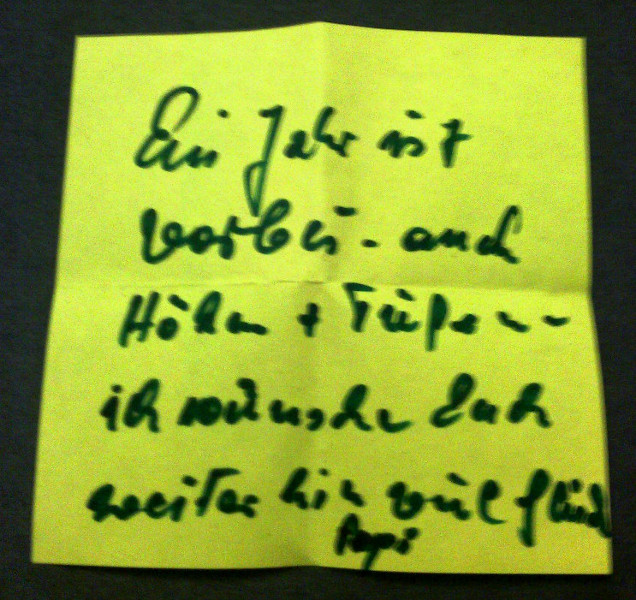 Ein Jahr ist
vorbei - auch
Höhen + Tiefen --
ich wünsche Euch
weiter hin viel Glück
Papi